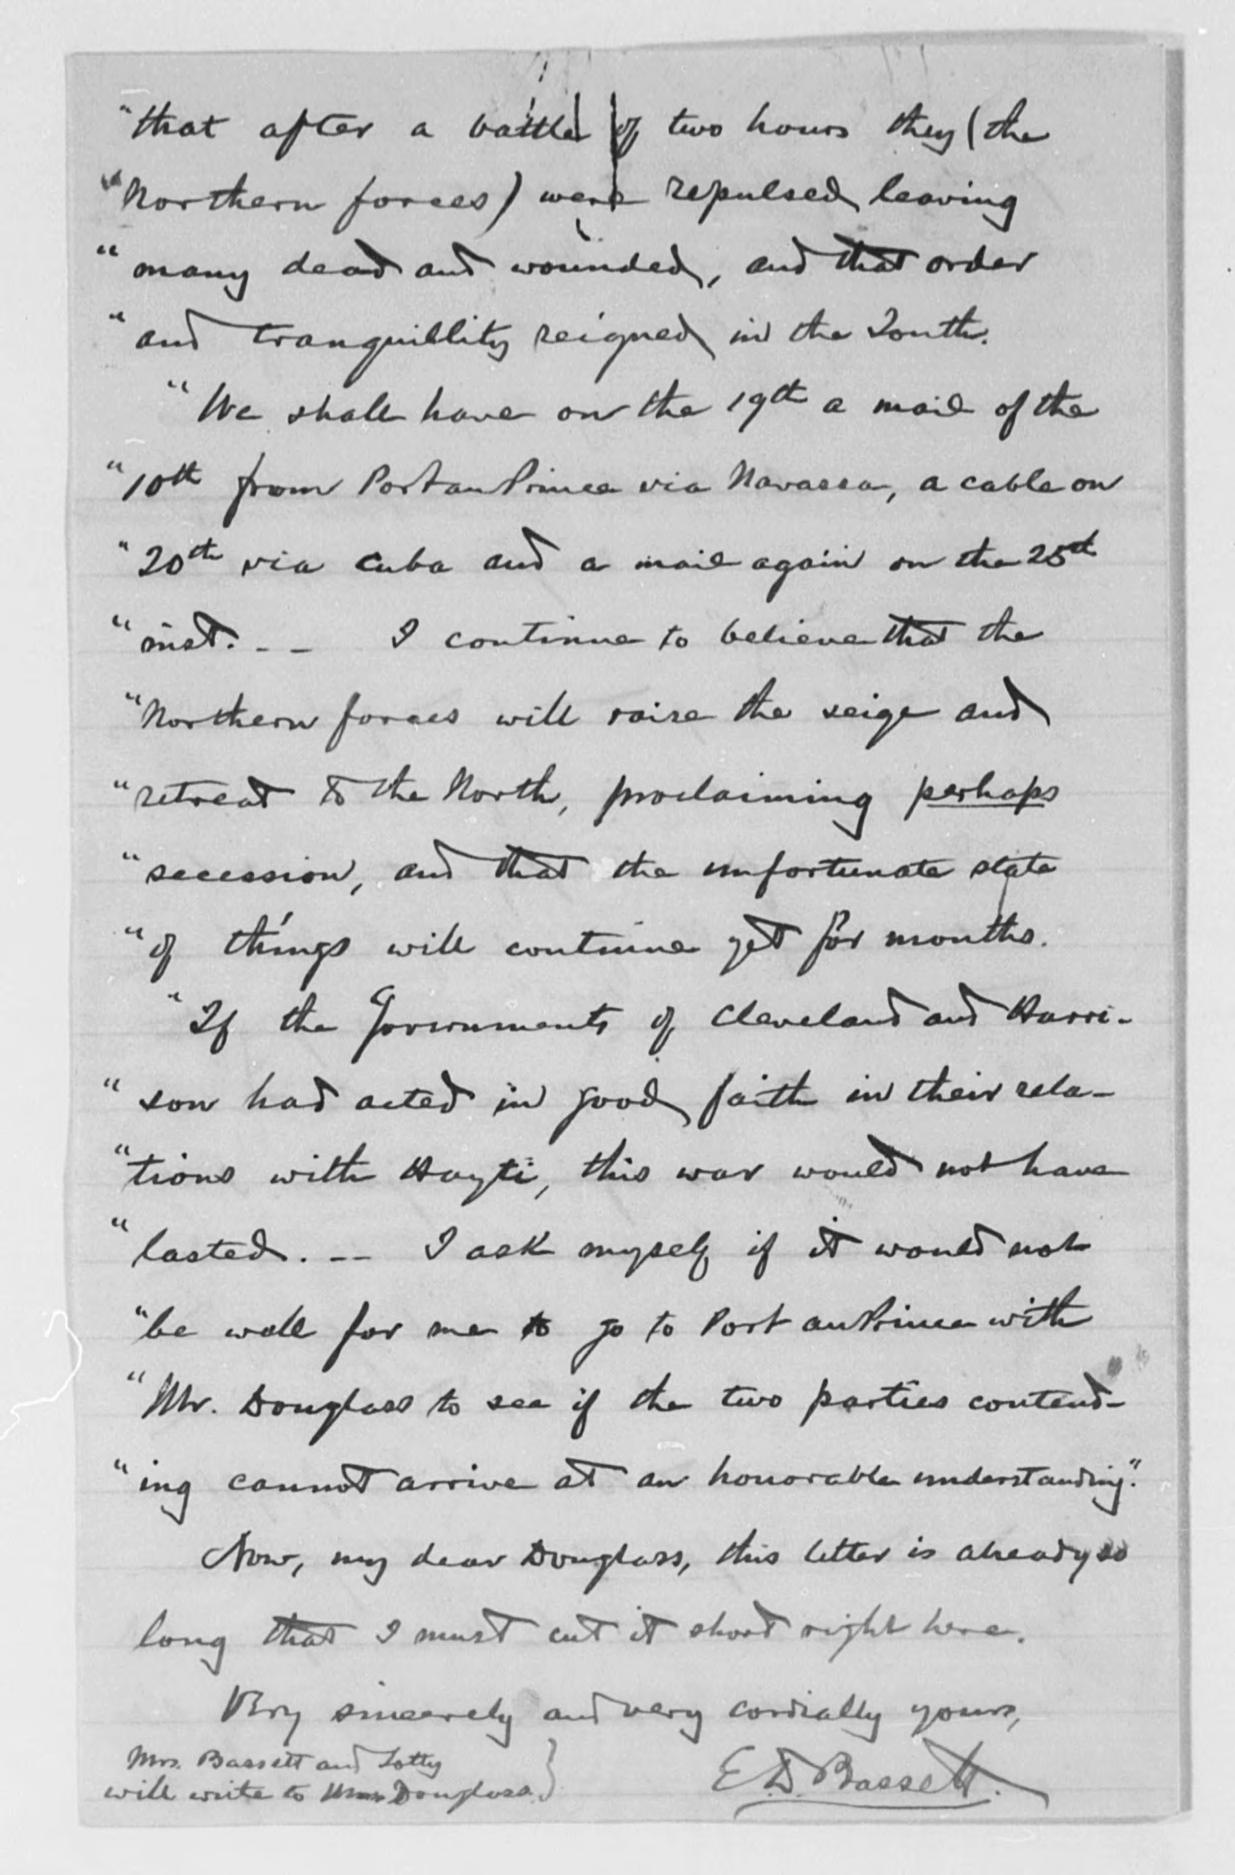 "that after a battle of two hours they (the
"Northern forces) were repulsed leaving
"many dead and wounded, and that order
"and tranquillity reigned in the South.
"We shall have on the 19th a mail of the
"10th from Port au Prince via Navassa, a cable on
"20th via Cuba and a mail again on the 25th
"inst. -- I continue to believe that the
"Northern forces will raise the seige and
"retreat to the North, proclaiming perhaps
"secession, and that the unfortunate state
"of things will continue yet for months.
"If the Governments of Cleveland and Harri-
"son had acted in good faith in their rela-
"tions with Hayti, this war would not have
"lasted. -- I ask myself if it would not
"be well for me to go to Port au Prince with
"Mr. Douglass to see if the two parties contend-
"ing cannot arrive at an honorable understanding."
Now, my dear Douglass, this letter is already so
long that I must cut it short right here.
Very sincerely and very cordially yours,
E. D. Bassett.
Mrs. Bassett and Lotty
will write to Mrs. Douglass.